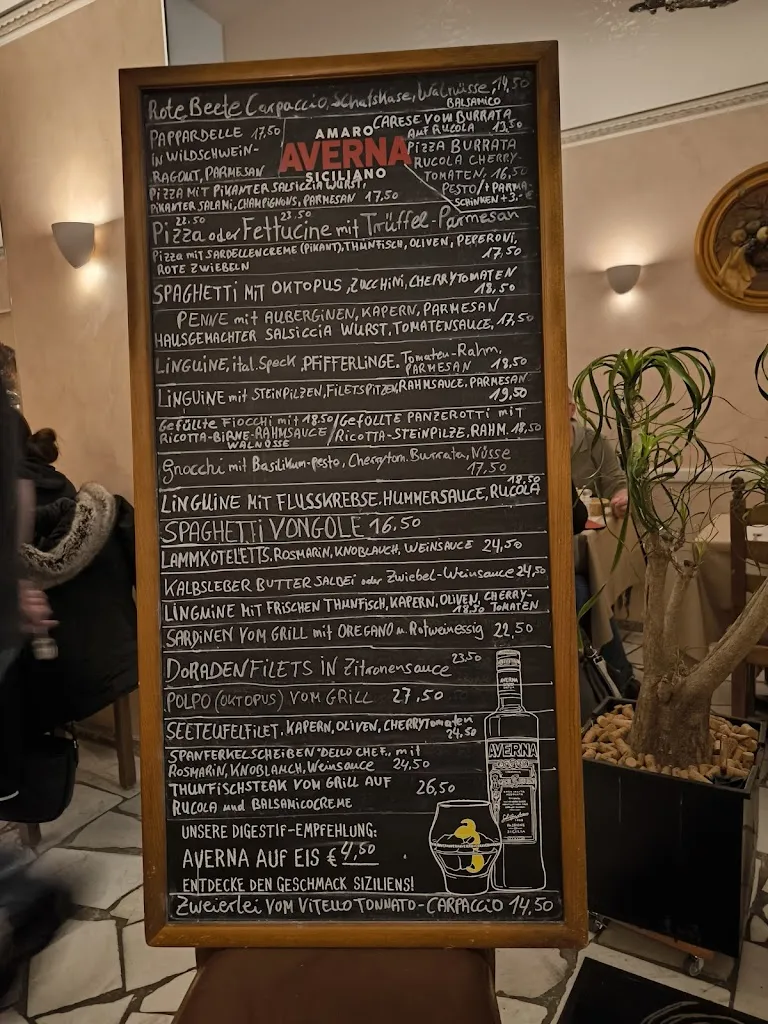 Rote Beete Carpaccio, Schafskäse, Walnüsse, 14,50
BALSAMICO
PAPPARDELLE 17,50
IN WILDSCHWEIN-
RAGOUT, PARMESAN
AMARO
AVERNA
SICILIANO
CARESE VOM BURRATA
AUF RUCOLA 13,50
PIZZA BURRATA
RUCOLA CHERRY-
TOMATEN, 16,50
PESTO/+PARMA-
SCHINKEN +3.-€
PIZZA MIT PIKANTER SALSICCIA WURST,
PIKANTER SALAMI, CHAMPIGNONS, PARMESAN 17,50
22.50 23.50
Pizza oder Fettucine mit Trüffel-Parmesan
Pizza mit SARDELLENCREME (PIKANT), THUNFISCH, OLIVEN, PEPERONI,
ROTE ZWIEBELN 17,50
SPAGHETTI MIT OKTOPUS, ZUCCHINI, CHERRYTOMATEN
18,50
PENNE mit AUBERGINEN, KAPERN, PARMESAN
HAUSGEMACHTER SALSICCIA WURST, TOMATENSAUCE, 17,50
LINGUINE, ital. Speck, PFIFFERLINGE, Tomaten-Rahm,
PARMESAN 18,50
LINGUINE mit STEINPILZEN, FILETSPITZEN, RAHMSAUCE, PARMESAN
19,50
Gefüllte FIOCCHI mit 18.50/GEFÜLLTE PANZEROTTI mit
RICOTTA-BIRNE-RAHMSAUCE/RICOTTA-STEINPILZE, RAHM. 18,50
WALNÜSSE
Gnocchi mit Basilikum-Pesto, Cherrytom. Burrata, Nüsse
17,50
18.50
LINGUINE MIT FLUSSKREBSE, HUMMERSAUCE, RUCOLA
SPAGHETTI VONGOLE 16,50
LAMMKOTELETTS, ROSMARIN, KNOBLAUCH, WEINSAUCE 24,50
KALBSLEBER BUTTER SALBEI oder Zwiebel-Weinsauce 24,50
LINGUINE MIT FRISCHEN THUNFISCH, KAPERN, OLIVEN, CHERRY-
18.50 TOMATEN
SARDINEN VOM GRILL mit OREGANO u. Rotweinessig 22,50
DORADENFILETS IN Zitronensauce 23,50
POLPO (OKTOPUS) VOM GRILL 27,50
SEETEUFELFILET, KAPERN, OLIVEN, CHERRYTomaten
24,50
SPANFERKELSCHEIBEN "DELLO CHEF" mit
ROSMARIN, KNOBLAUCH, Weinsauce 24,50
THUNFISCHSTEAK VOM GRILL AUF 26,50
RUCOLA und BALSAMICOCREME
UNSERE DIGESTIF-EMPFEHLUNG:
AVERNA AUF EIS € 4,50
ENTDECKE DEN GESCHMACK SIZILIENS!
AVERNA
AVERNA
Zweierlei VOM VITELLO TONNATO-CARPACCIO 14,50